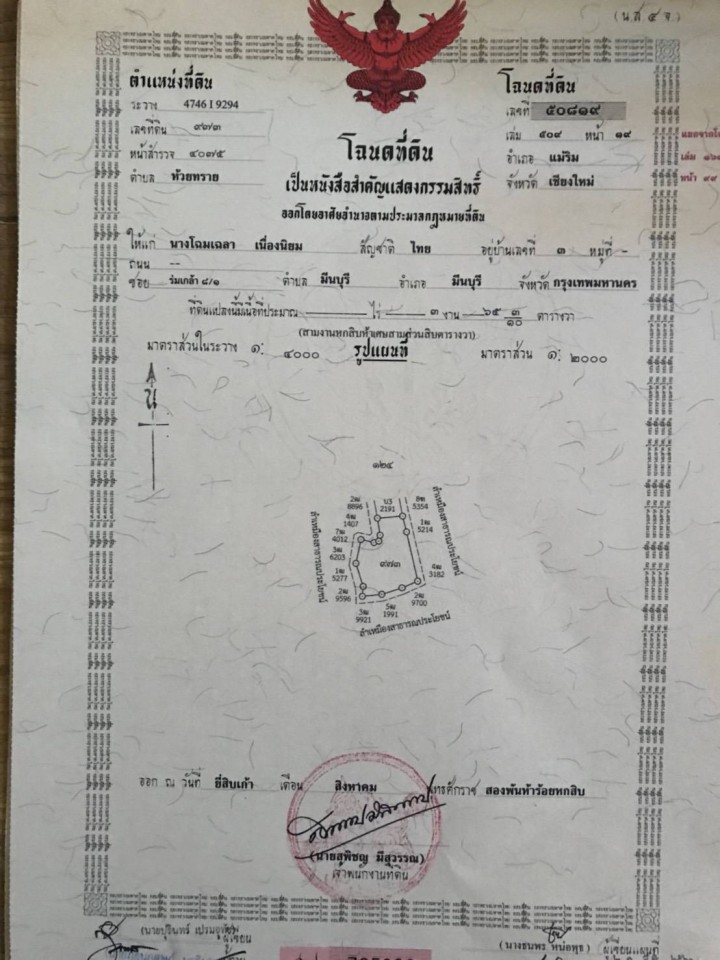 (น.ส ๔ จ.)
ตำแหน่งที่ดิน
ระวาง 4746 I 9294
เลขที่ดิน ๙๗๓
หน้าสำรวจ ๔๐๗๕
ตำบล ห้วยทราย
โฉนดที่ดิน
เลขที่ ๕๐๘๑๙
เล่ม ๕๐๙ หน้า ๑๙
อำเภอ แม่ริม
จังหวัด เชียงใหม่
หน้า ๙๙
โฉนดที่ดิน
เป็นหนังสือสำคัญแสดงกรรมสิทธิ์
ออกโดยอาศัยอำนาจตามประมวลกฎหมายที่ดิน
ให้แก่ นางโฉมเฉลา เนื่องนิยม สัญชาติ ไทย อยู่บ้านเลขที่ ๓ หมู่ที่ -
ถนน --
ซอย ร่มเกล้า ๔/๑ ตำบล มีนบุรี อำเภอ มีนบุรี จังหวัด กรุงเทพมหานคร
ที่ดินแปลงนี้มีเนื้อที่ประมาณ ไร่ ๓ งาน ๖๕ ๓/๑๐ ตารางวา
(สามงานหกสิบห้าเศษสามส่วนสิบตารางวา)
มาตราส่วนในระวาง ๑: ๔๐๐๐ รูปแผนที่ มาตราส่วน ๑: ๒๐๐๐
น
๑๒๕
2ฒ 8896
บ3 2191
8ฒ 5354
4ฒ 1407
1ฒ 5214
7ฒ 4012
3ฒ 6203
๙๗๓
1ฒ 5277
4ฒ 3182
2ฒ 9596
2ฒ 9700
3ฒ 9921
5ฒ 1991
ลำเหมืองสาธารณประโยชน์
ลำเหมืองสาธารณประโยชน์
ลำเหมืองสาธารณประโยชน์
ออก ณ วันที่ ยี่สิบเก้า เดือน สิงหาคม พุทธศักราช สองพันห้าร้อยหกสิบ
(นายสุพิชญ มีสุวรรณ)
เจ้าพนักงานที่ดิน
ผู้เขียน
ผู้เขียนแผนที่